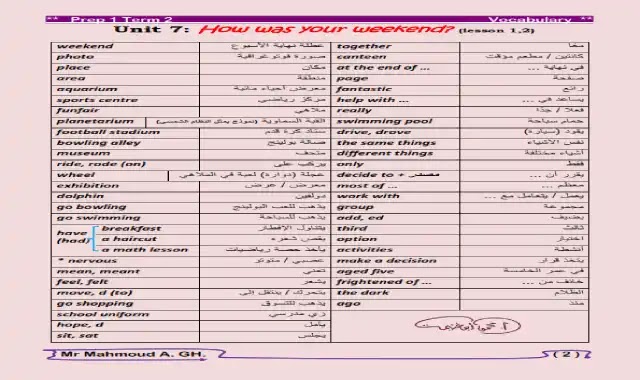 ** Prep 1 Term 2 Vocabulary **
Unit 7: How was your weekend? (lesson 1,2)
weekend عطلة نهاية الأسبوع together معا
photo صورة فوتوغرافية canteen كانتين / مطعم مؤقت
place مكان at the end of ... في نهاية ...
area منطقة page صفحة
aquarium معرض أحياء مائية fantastic رائع
sports centre مركز رياضي help with ... يساعد في ...
funfair ملاهي really فعلا / جدا
planetarium القبة السماوية (نموذج يمثل النظام الشمسي) swimming pool حمام سباحة
football stadium ستاد كرة قدم drive, drove يقود (سيارة)
bowling alley صالة بولينج the same things نفس الأشياء
museum متحف different things أشياء مختلفة
ride, rode (on) يركب على only فقط
wheel عجلة (دوارة) لعبة في الملاهي decide to + مصدر يقرر أن ...
exhibition معرض / عرض most of ... معظم ...
dolphin دولفين work with يعمل / يتعامل مع ...
go bowling يذهب للعب البولينج group مجموعة
go swimming يذهب للسباحة add, ed يضيف
have (had) breakfast يتناول الإفطار third ثالث
a haircut يقص شعره option اختيار
a math lesson يأخذ حصة رياضيات activities أنشطة
* nervous عصبي / متوتر make a decision يتخذ قرار
mean, meant تعني aged five في عمر الخامسة
feel, felt يشعر frightened of ... خائف من ...
move, d (to) يتحرك / ينتقل إلى the dark الظلام
go shopping يذهب للتسوق ago منذ
school uniform زي مدرسي
hope, d يأمل
sit, sat يجلس
Mr Mahmoud A. GH. ( 2 )